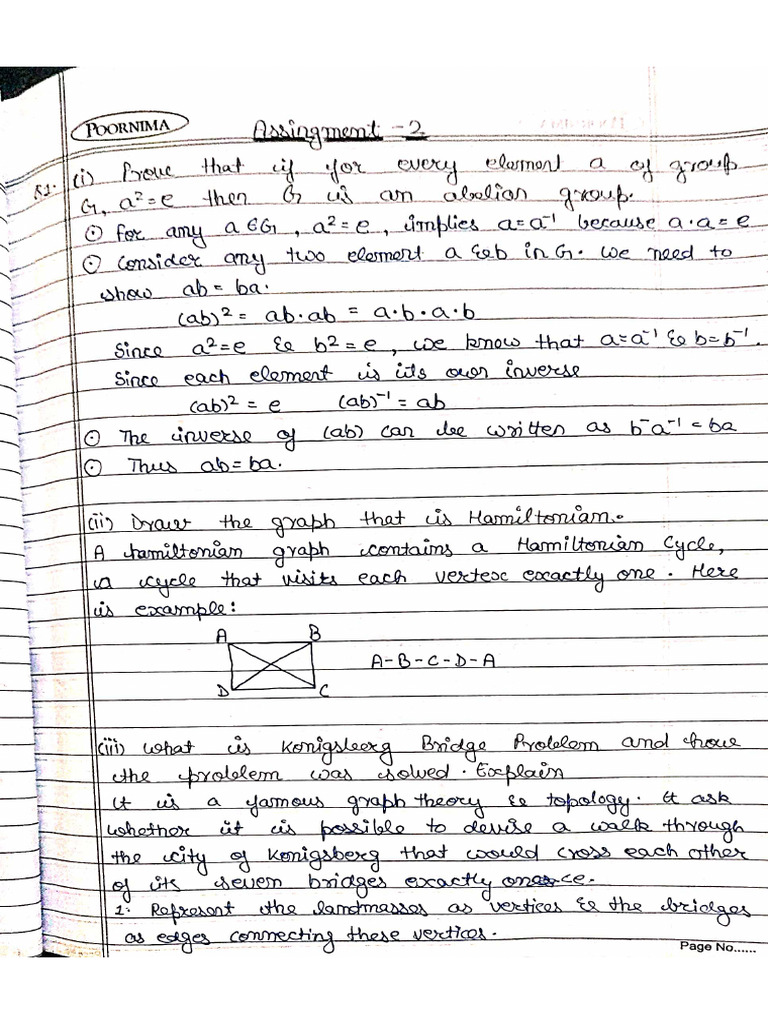 POORNIMA
Assingment - 2
Q1. (i) Prove that if for every element a of group
G, a² = e then G is an abelian group.
⊙ for any a ∈ G, a² = e, implies a = a⁻¹ because a·a = e
⊙ consider any two element a & b in G. we need to
show ab = ba.
(ab)² = ab·ab = a·b·a·b
Since a² = e & b² = e, we know that a = a⁻¹ & b = b⁻¹.
Since each element is its own inverse
(ab)² = e (ab)⁻¹ = ab
⊙ The inverse of (ab) can be written as b⁻a⁻¹ = ba
⊙ Thus ab = ba.
(ii) Draw the graph that is Hamiltonian.
A hamiltonian graph contains a Hamiltonian Cycle,
a cycle that visits each vertex exactly one. Here
is example:
A B
A-B-C-D-A
D C
(iii) what is Konigsberg Bridge Problem and how
the problem was solved. Explain
It is a famous graph theory & topology. It ask
whether it is possible to devise a walk through
the city of Konigsberg that would cross each other
of its seven bridges exactly once.
1. Represent the landmasses as vertices & the bridges
as edges connecting these vertices.
Page No......